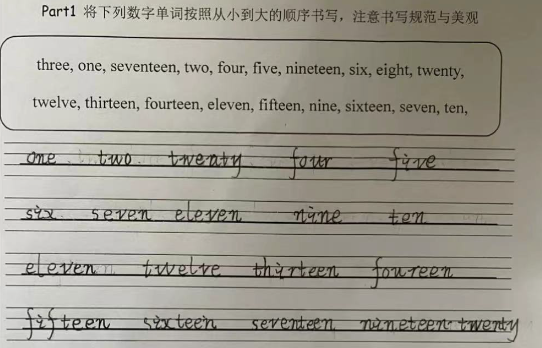 Part1 将下列数字单词按照从小到大的顺序书写，注意书写规范与美观
three, one, seventeen, two, four, five, nineteen, six, eight, twenty,
twelve, thirteen, fourteen, eleven, fifteen, nine, sixteen, seven, ten,
one two twenty four five
six seven eleven nine ten
eleven twelve thirteen foureen
fifteen sixteen seventeen nineteen twenty